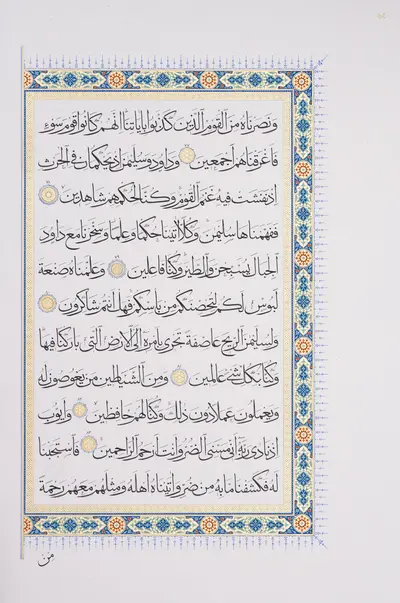 ونصرناه من القوم الذين كذبوا باياتنا انهم كانوا قوم سوء
فاغرقناهم اجمعين وداود وسليمن اذ يحكمان في الحرث
اذ نفشت فيه غنم القوم وكنا لحكمهم شاهدين
ففهمناها سليمن وكلا اتينا حكما وعلما وسخرنا مع داود
الجبال يسبحن والطير وكنا فاعلين وعلمناه صنعة
لبوس لكم لتحصنكم من باسكم فهل انتم شاكرون
ولسليمن الريح عاصفة تجري بامره الى الارض التي باركنا فيها
وكنا بكل شيء عالمين ومن الشياطين من يغوصون له
ويعملون عملا دون ذلك وكنا لهم حافظين وايوب
اذ نادى ربه اني مسني الضر وانت ارحم الراحمين فاستجبنا
له فكشفنا ما به من ضر واتيناه اهله ومثلهم معهم رحمة
من